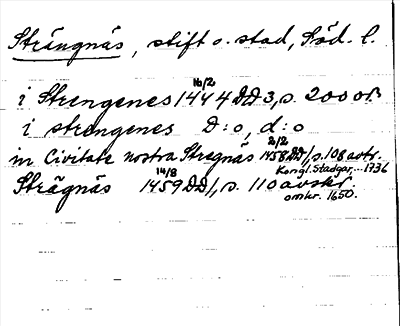 Strängnäs, stift o. stad, Söd. l.
16/2
i Strengenes 1444 DD 3, s. 200 or.
i strengenes D:o, d:o
2/2
in Civitate nostra Stregnäs 1458 DD 1, s. 108 avtr.
14/8 Kongl. Stadgar... 1736
Strägnäs 1459 DD 1, s. 110 avskr.
omkr. 1650.